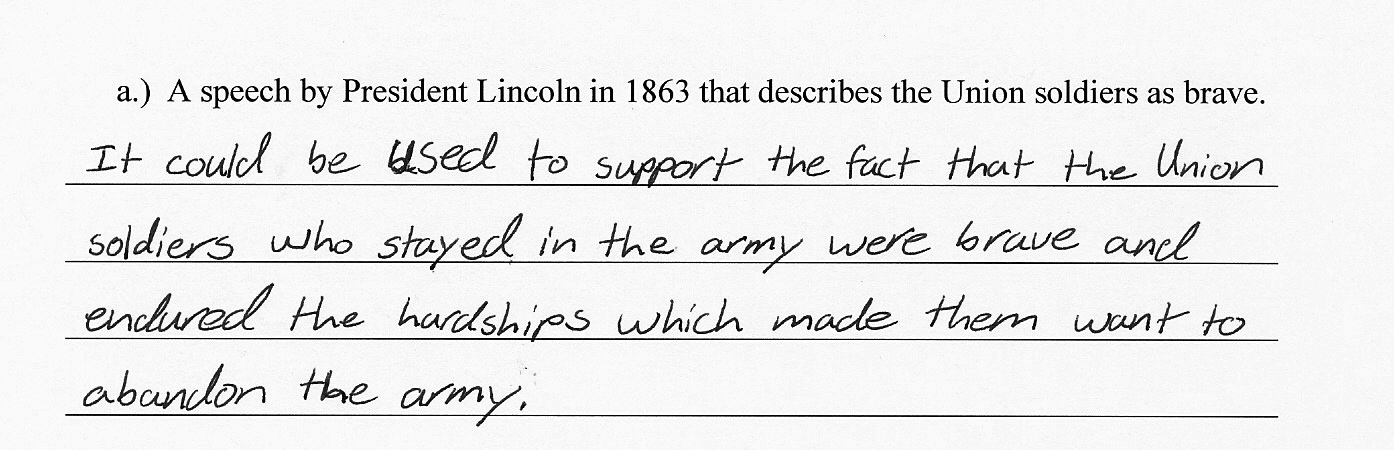 a.) A speech by President Lincoln in 1863 that describes the Union soldiers as brave.
It could be used to support the fact that the Union
soldiers who stayed in the army were brave and
endured the hardships which made them want to
abandon the army.